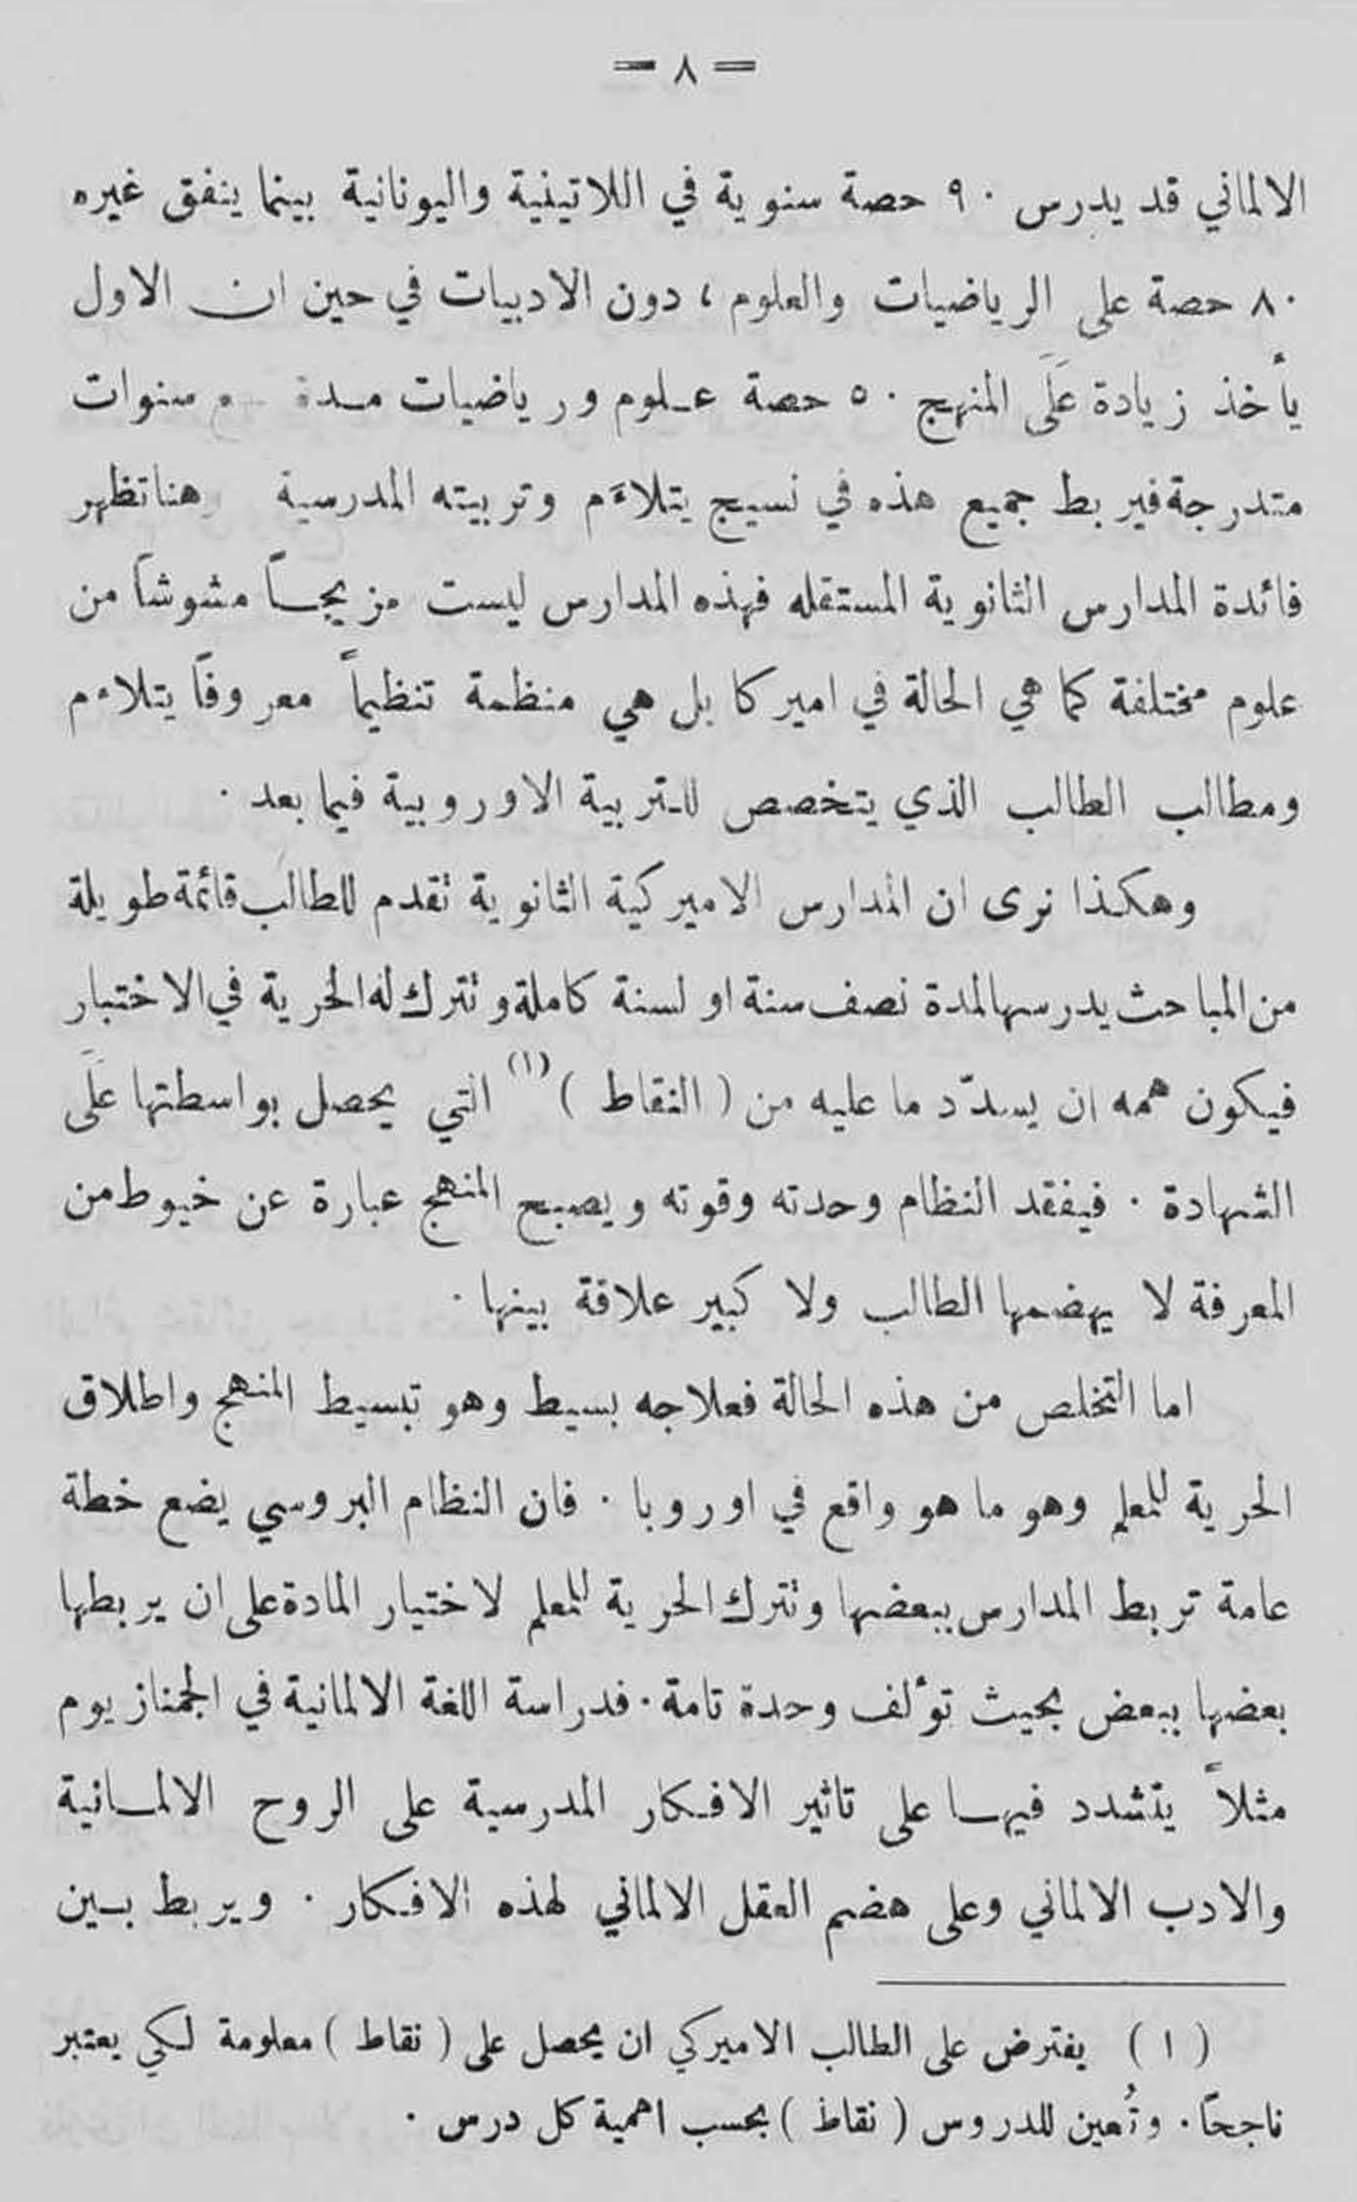 = ٨ =
الالماني قد يدرس ٩٠ حصة سنوية في اللاتينية واليونانية بينما ينفق غيره
٨٠ حصة على الرياضيات والعلوم ، دون الادبيات في حين ان الاول
يأخذ زيادة عَلَى المنهج ٥٠ حصة علوم ورياضيات مدة سنوات
متدرجة فيربط جميع هذه في نسيج يتلاءم وتربيته المدرسية وهنا تظهر
فائدة المدارس الثانوية المستقله فهذه المدارس ليست مزيجاً مشوشاً من
علوم مختلفة كما هي الحالة في اميركا بل هي منظمة تنظيماً معروفاً يتلاءم
ومطالب الطالب الذي يتخصص للتربية الاوروبية فيما بعد ·
وهكذا نرى ان المدارس الاميركية الثانوية تقدم للطالب قائمة طويلة
من المباحث يدرسها لمدة نصف سنة او لسنة كاملة وتترك له الحرية في الاختبار
فيكون همه ان يسدّد ما عليه من ( النقاط ) (١) التي يحصل بواسطتها عَلَى
الشهادة · فيفقد النظام وحدته وقوته ويصبح المنهج عبارة عن خيوط من
المعرفة لا يهضمها الطالب ولا كبير علاقة بينها ·
اما التخلص من هذه الحالة فعلاجه بسيط وهو تبسيط المنهج واطلاق
الحرية للمعلم وهو ما هو واقع في اوروبا · فان النظام البروسي يضع خطة
عامة تربط المدارس ببعضها وتترك الحرية للمعلم لاختيار المادة على ان يربطها
بعضها ببعض بحيث تؤلف وحدة تامة · فدراسة اللغة الالمانية في الجمنازيوم
مثلاً يتشدد فيها على تاثير الافكار المدرسية على الروح الالمانية
والادب الالماني وعلى هضم العقل الالماني لهذه الافكار · ويربط بين
( ١ ) يفترض على الطالب الاميركي ان يحصل على ( نقاط ) معلومة لكي يعتبر
ناجحاً · وتُعين للدروس ( نقاط ) بحسب اهمية كل درس ·